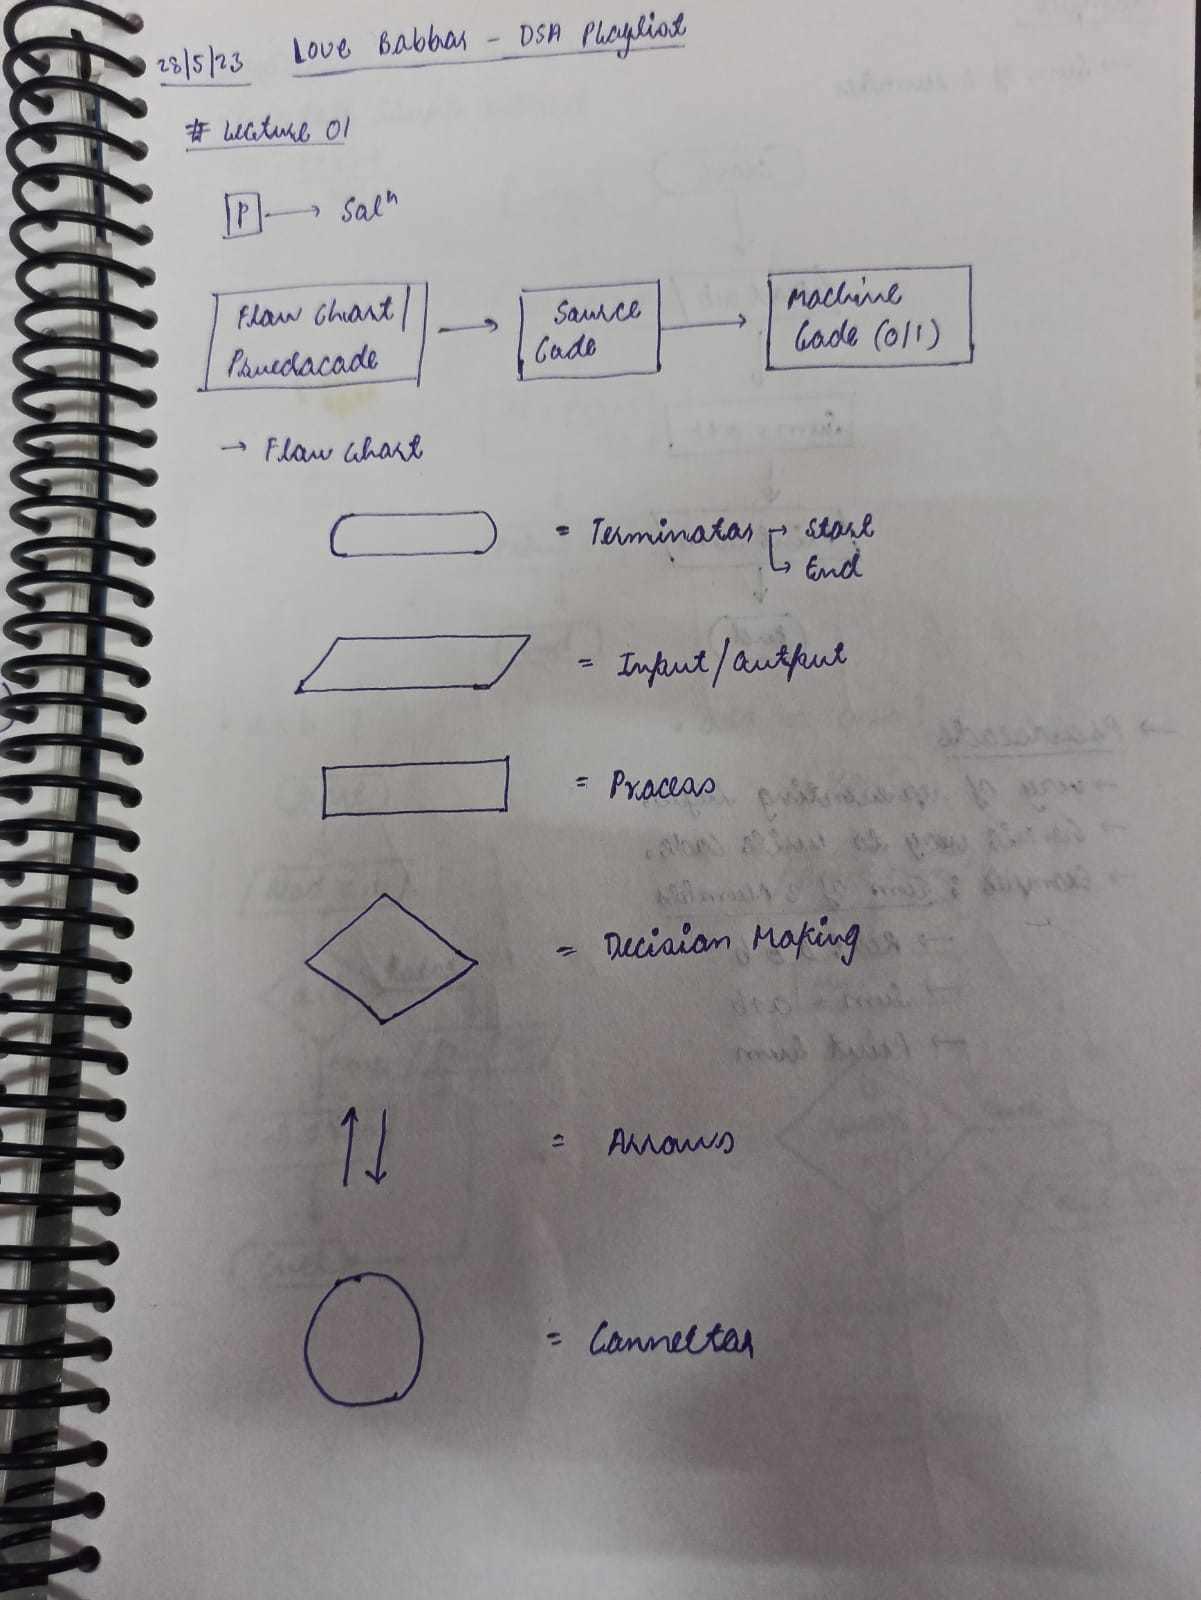 28/5/23 Love Babbar - DSA Playlist
# Lecture 01
P → Solⁿ
Flow Chart/ → Source → Machine
Psuedocode Code Code (0/1)
→ Flow Chart
= Terminator → Start
↳ End
= Input/Output
= Process
= Decision Making
= Arrows
= Connector